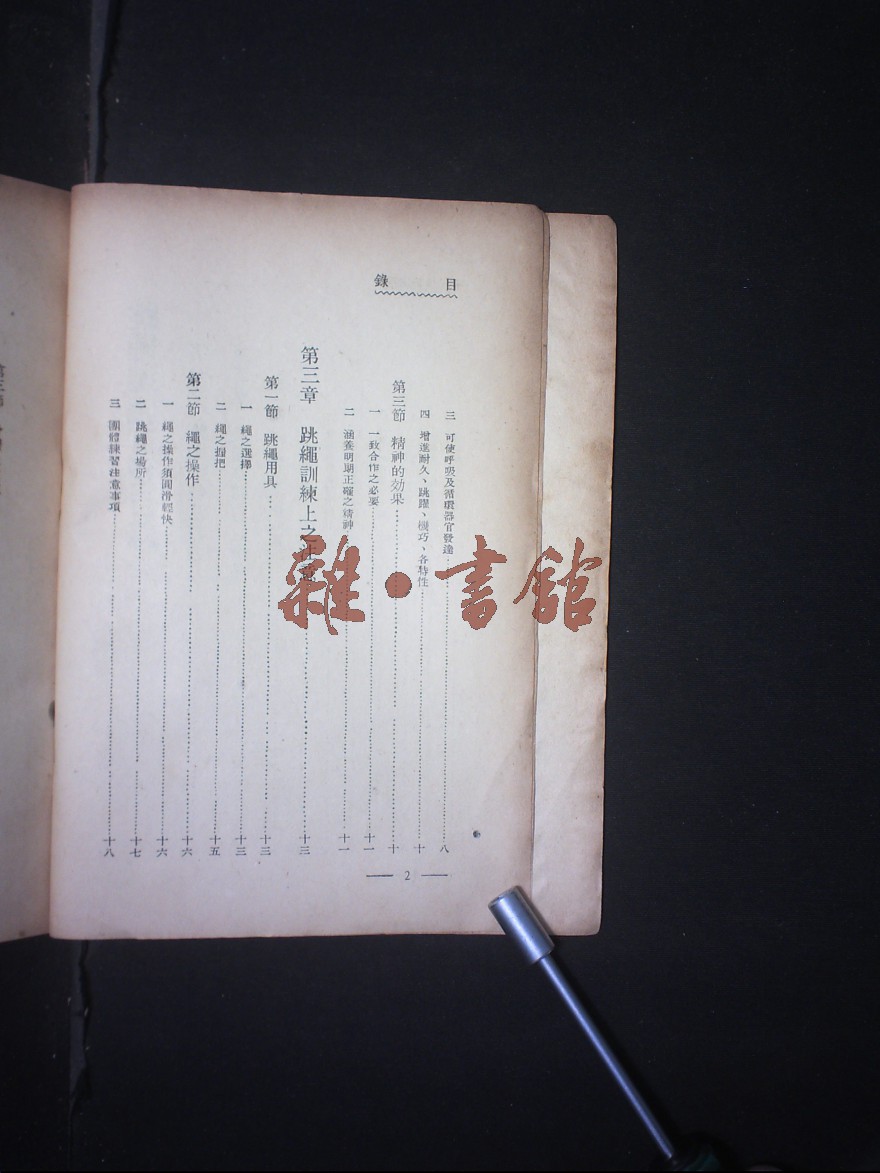 目錄
三 可使呼吸及循環器官發達 八
四 增進耐久、跳躍、機巧、各特性 十
第三節 精神的効果 十
一 一致合作之必要 十一
二 涵養明期正確之精神 十一
第三章 跳繩訓練上之注意 十三
第一節 跳繩用具 十三
一 繩之選擇 十三
二 繩之握把 十五
第二節 繩之操作 十六
一 繩之操作須圓滑輕快 十六
二 跳繩之場所 十七
三 團體練習注意事項 十八
2
雜·書館